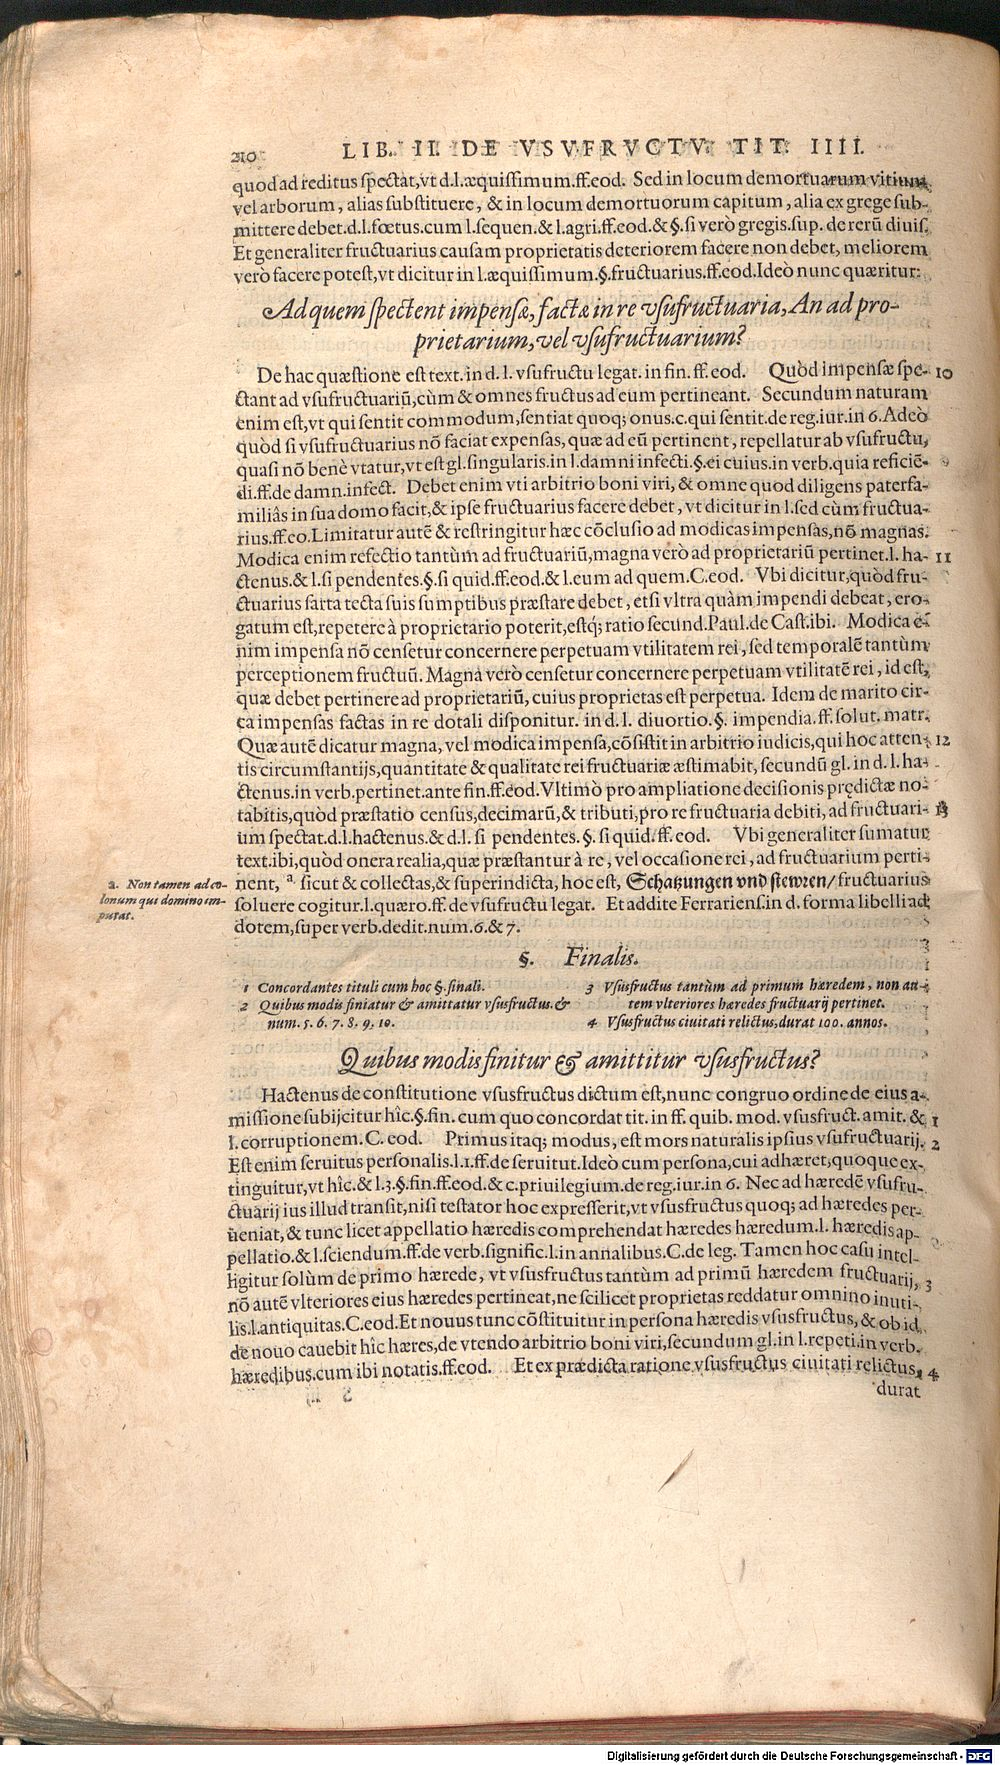 210 LIB. II. DE VSVFRVCTV. TIT. IIII.
quod ad reditus spectat, vt d.l.æquissimum.ff.eod. Sed in locum demortuarum vitium,
vel arborum, alias substituere, & in locum demortuorum capitum, alia ex grege sub-
mittere debet.d.l.fœtus.cum l.sequen.& l.agri.ff.eod.& §.si verò gregis.sup. de rerũ diuis.
Et generaliter fructuarius causam proprietatis deteriorem facere non debet, meliorem
verò facere potest,vt dicitur in l.æquissimum.§.fructuarius.ff.eod.Ideò nunc quæritur:
Ad quem spectent impensæ, factæ in re vsufructuaria, An ad pro-
prietarium, vel vsufructuarium?
De hac quæstione est text. in d. l. vsufructu legat. in fin. ff. eod. Quòd impensæ spe- 10
ctant ad vsufructuariũ,cùm & omnes fructus ad eum pertineant. Secundum naturam
enim est,vt qui sentit commodum,sentiat quoq; onus.c.qui sentit.de reg.iur.in 6.Adeò
quòd si vsufructuarius nõ faciat expensas, quæ ad eũ pertinent, repellatur ab vsufructu,
quasi nõ benè vtatur,vt est gl.singularis.in l.damni infecti.§.ei cuius.in verb.quia reficiẽ-
di.ff.de damn.infect. Debet enim vti arbitrio boni viri, & omne quod diligens paterfa-
miliâs in sua domo facit,& ipse fructuarius facere debet, vt dicitur in l.sed cùm fructua-
rius.ff.eo.Limitatur autẽ & restringitur hæc cõclusio ad modicas impensas,nõ magnas.
Modica enim refectio tantùm ad fructuariũ,magna verò ad proprietariũ pertinet.l. ha- 11
ctenus.& l.si pendentes.§.si quid.ff.eod.& l.eum ad quem.C.eod. Vbi dicitur,quòd fru-
ctuarius sarta tecta suis sumptibus præstare debet, etsi vltra quàm impendi debeat, ero-
gatum est,repetere à proprietario poterit,estq́; ratio secund.Paul.de Cast.ibi. Modica e-
nim impensa nõ censetur concernere perpetuam vtilitatem rei, sed temporalẽ tantùm
perceptionem fructuũ. Magna verò censetur concernere perpetuam vtilitatẽ rei, id est,
quæ debet pertinere ad proprietariũ, cuius proprietas est perpetua. Idem de marito cir-
ca impensas factas in re dotali disponitur. in d. l. diuortio. §. impendia. ff. solut. matr.
Quæ autẽ dicatur magna, vel modica impensa,cõsistit in arbitrio iudicis,qui hoc atten- 12
tis circumstantijs,quantitate & qualitate rei fructuariæ æstimabit, secundũ gl. in d. l. ha-
ctenus.in verb.pertinet.ante fin.ff.eod.Vltimò pro ampliatione decisionis prędictæ no-
tabitis,quòd præstatio census,decimarũ,& tributi,pro re fructuaria debiti, ad fructuari- 13
um spectat.d.l.hactenus.& d.l. si pendentes. §. si quid.ff. eod. Vbi generaliter sumatur
text.ibi,quòd onera realia,quæ præstantur à re, vel occasione rei, ad fructuarium perti-
nent, ª sicut & collectas,& superindicta, hoc est, Schatzungen vnd stewren/ fructuarius
a. Non tamen ad co-
lonum qui domino im-
putat.
soluere cogitur.l.quæro.ff.de vsufructu legat. Et addite Ferrariens.in d. forma libelli ad
dotem,super verb.dedit.num.6.& 7.
§. Finalis.
1 Concordantes tituli cum hoc §.finali.
2 Quibus modis finiatur & amittatur vsusfructus.&
num. 5. 6. 7. 8. 9. 10.
3 Vsusfructus tantùm ad primum hæredem, non au-
tem vlteriores hæredes fructuarij pertinet.
4 Vsusfructus ciuitati relictus,durat 100. annos.
Quibus modis finitur & amittitur vsusfructus?
Hactenus de constitutione vsusfructus dictum est,nunc congruo ordine de eius a-
missione subijcitur hîc.§.fin. cum quo concordat tit. in ff. quib. mod. vsusfruct. amit. & 1
l.corruptionem.C. eod. Primus itaq; modus, est mors naturalis ipsius vsufructuarij. 2
Est enim seruitus personalis.l.1.ff.de seruitut.Ideò cum persona,cui adhæret,quoque ex-
tinguitur,vt hîc.& l.3.§.fin.ff.eod.& c.priuilegium.de reg.iur.in 6. Nec ad hæredẽ vsufru-
ctuarij ius illud transit,nisi testator hoc expresserit,vt vsusfructus quoq; ad hæredes per-
ueniat, & tunc licet appellatio hæredis comprehendat hæredes hæredum.l. hæredis ap-
pellatio.& l.sciendum.ff.de verb.signific.l.in annalibus.C.de leg. Tamen hoc casu intel-
ligitur solùm de primo hærede, vt vsusfructus tantùm ad primũ hæredem fructuarij, 3
nõ autẽ vlteriores eius hæredes pertineat,ne scilicet proprietas reddatur omnino inuti-
lis.l.antiquitas.C.eod.Et nouus tunc cõstituitur in persona hæredis vsusfructus, & ob id
de nouo cauebit hîc hæres,de vtendo arbitrio boni viri,secundum gl.in l.repeti.in verb.
hæredibus.cum ibi notatis.ff.eod. Et ex prædicta ratione vsusfructus ciuitati relictus, 4
durat
Digitalisierung gefördert durch die Deutsche Forschungsgemeinschaft - DFG